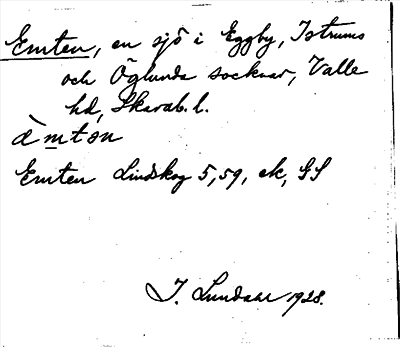 Emten, en sjö i Eggby, Istrums
och Öglunda socknar, Valle
hd, Skarab. l.
àmtən
Emten Lindskog 5,59, ek, GS
I. Lundahl 1928.